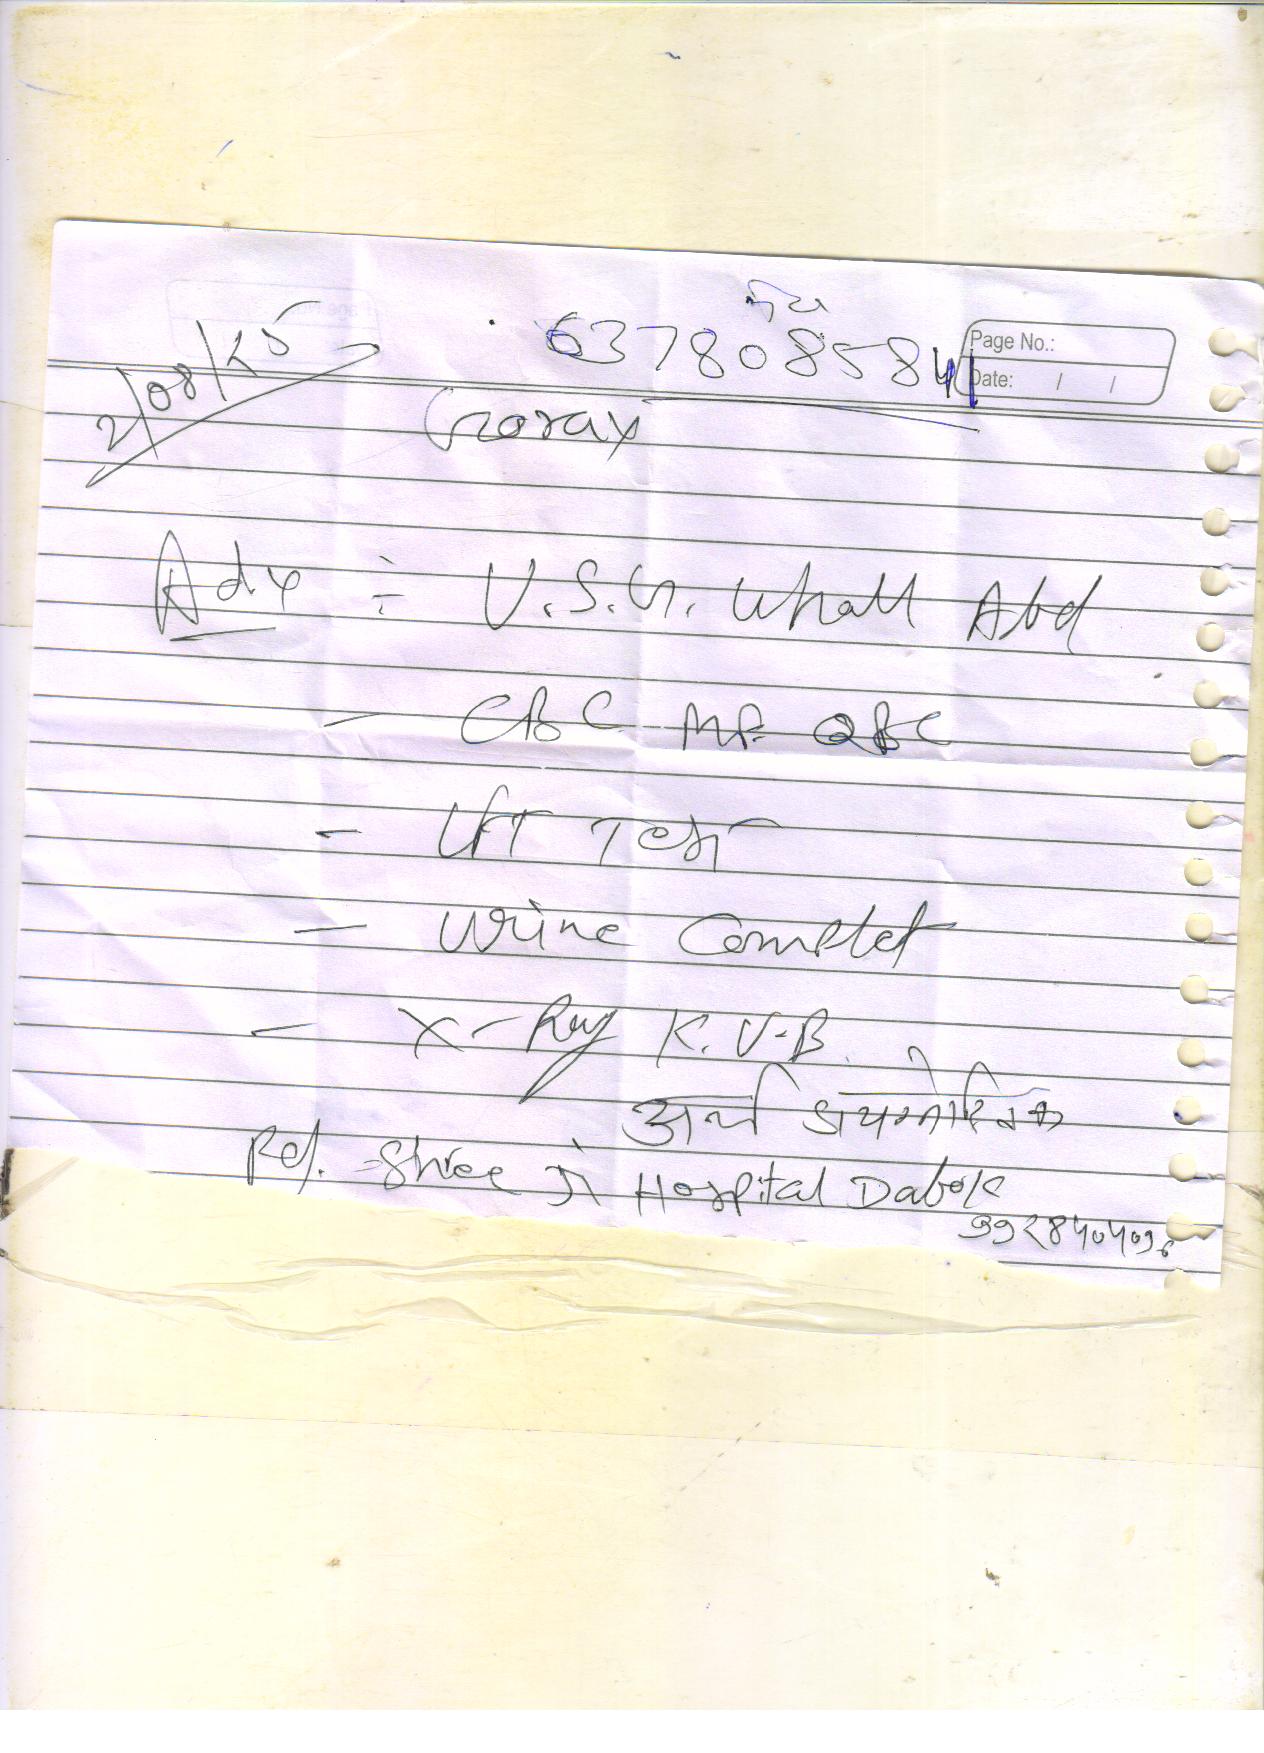 2/08/25
6378085841
Page No.:
Date: / /
Adv ÷ U.S.G. Whall Abd
— CBC MP QBC
- LFT Test
— Urine Complet
— X-Ray K.U.B.
अर्थ डायग्नोस्टिक
Ref. - Shree जी Hospital Dabok
9928404096